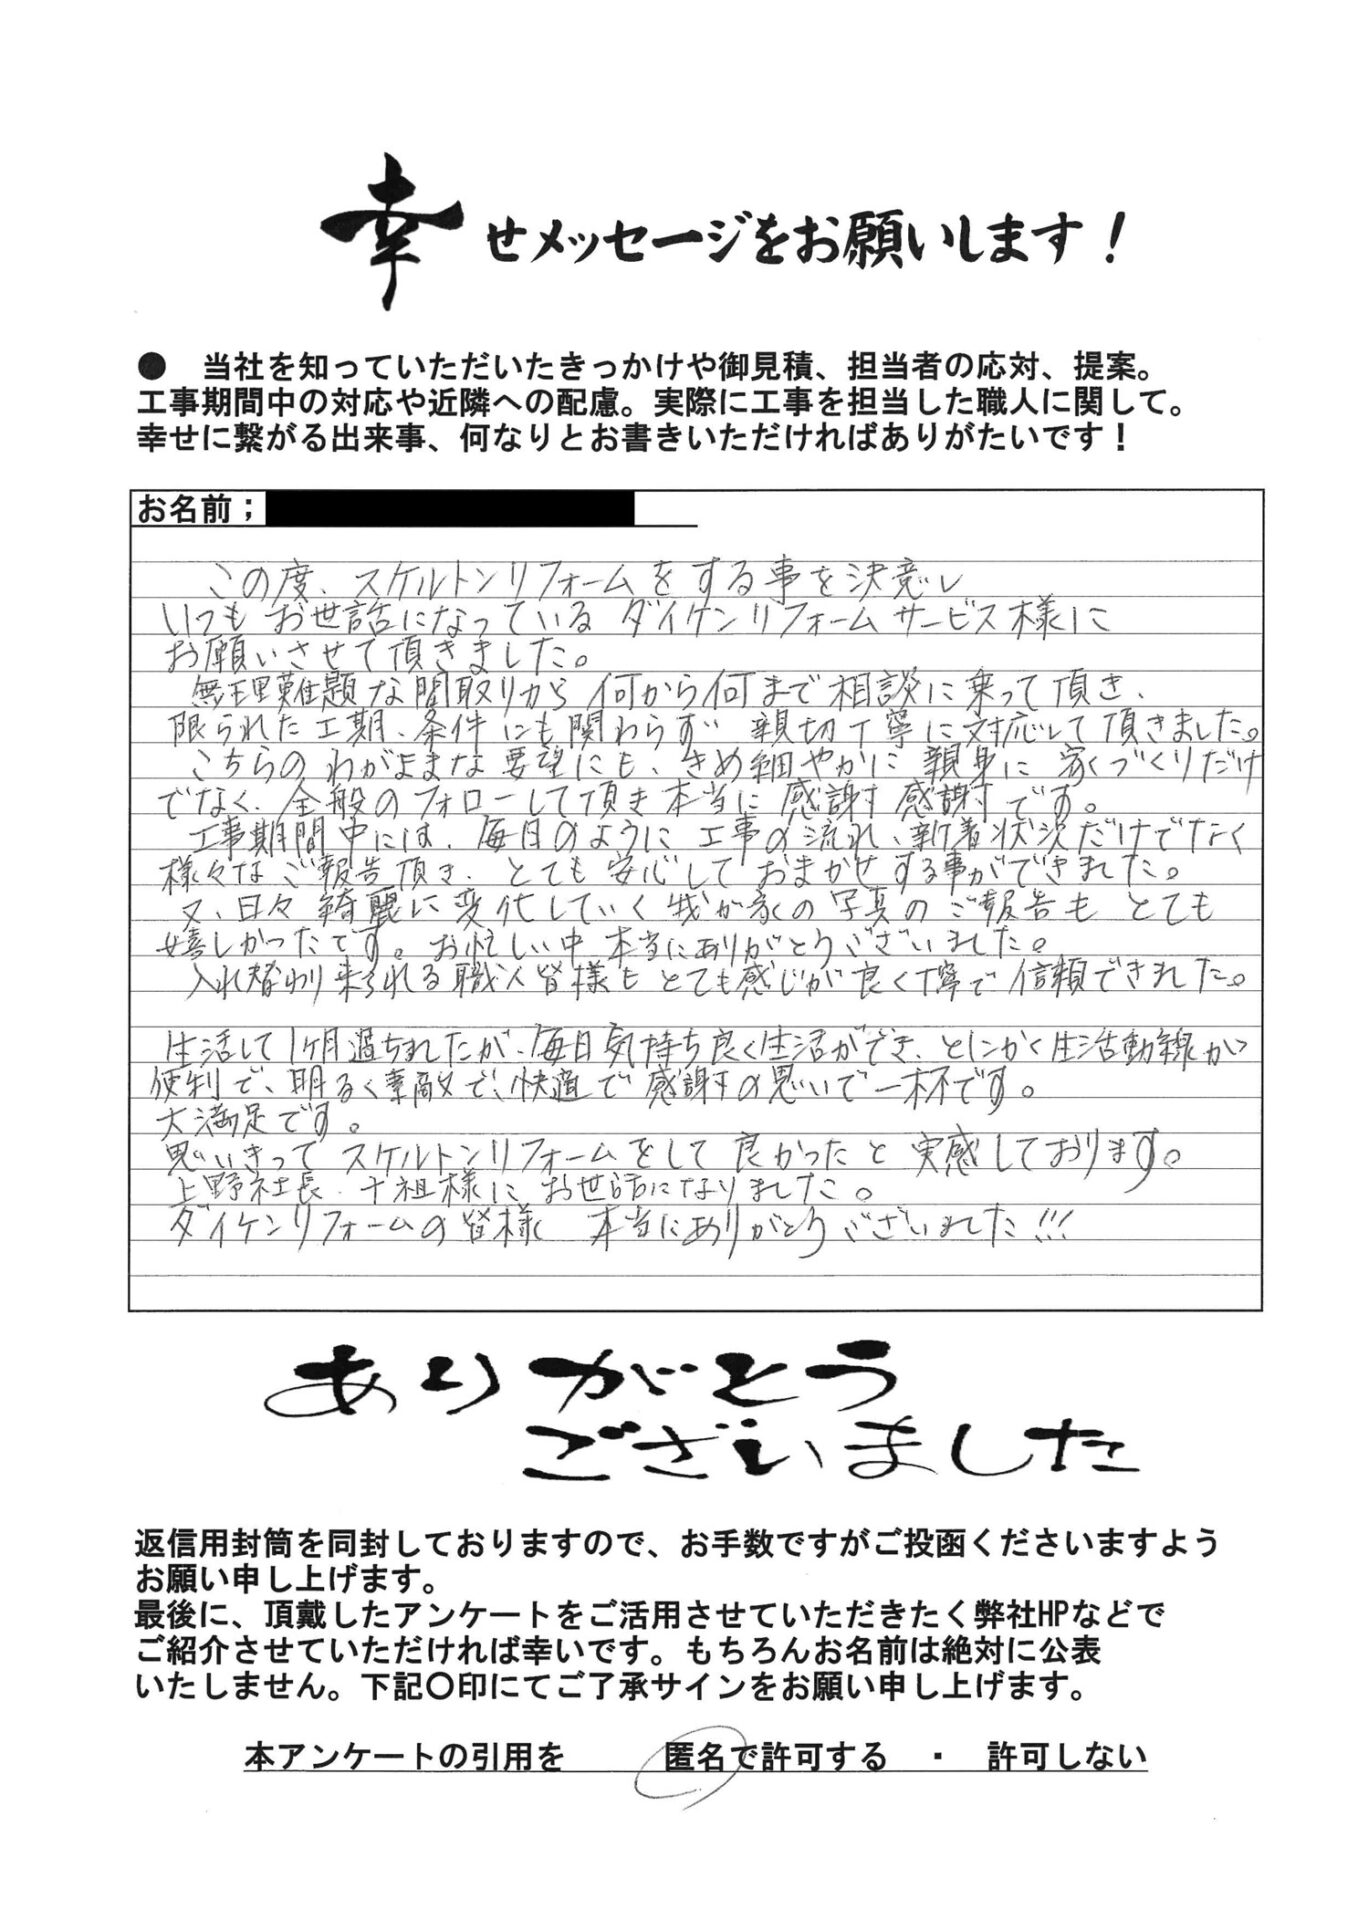 幸せメッセージをお願いします!
● 当社を知っていただいたきっかけや御見積、担当者の応対、提案。
工事期間中の対応や近隣への配慮。実際に工事を担当した職人に関して。
幸せに繋がる出来事、何なりとお書きいただければありがたいです!
お名前;
この度、スケルトンリフォームをする事を決意し
いつもお世話になっているダイケンリフォームサービス様に
お願いさせて頂きました。
無理難題な間取りから何から何まで相談に乗って頂き、
限られた工期、条件にも関わらず親切丁寧に対応して頂きました。
こちらのわがままな要望にも、きめ細やかに親身に家づくりだけ
でなく、全般のフォローして頂き本当に感謝感謝です。
工事期間中には、毎日のように工事の流れ、新着状況だけでなく
様々なご報告頂き、とても安心しておまかせする事ができました。
又、日々綺麗に変化していく我が家の写真のご報告もとても
嬉しかったです。お忙しい中本当にありがとうございました。
入れ替わり来られる職人皆様もとても感じが良く丁寧で信頼できました。
生活して1ヶ月過ぎましたが、毎日気持ち良く生活ができ、とにかく生活動線が
便利で、明るく素敵で、快適で感謝の思いで一杯です。
大満足です。
思いきってスケルトンリフォームをして良かったと実感しております。
上野社長、十祖様にお世話になりました。
ダイケンリフォームの皆様 本当にありがとうございました!!!
ありがとう
ございました
返信用封筒を同封しておりますので、お手数ですがご投函くださいますよう
お願い申し上げます。
最後に、頂戴したアンケートをご活用させていただきたく弊社HPなどで
ご紹介させていただければ幸いです。もちろんお名前は絶対に公表
いたしません。下記〇印にてご了承サインをお願い申し上げます。
本アンケートの引用を 匿名で許可する ・ 許可しない